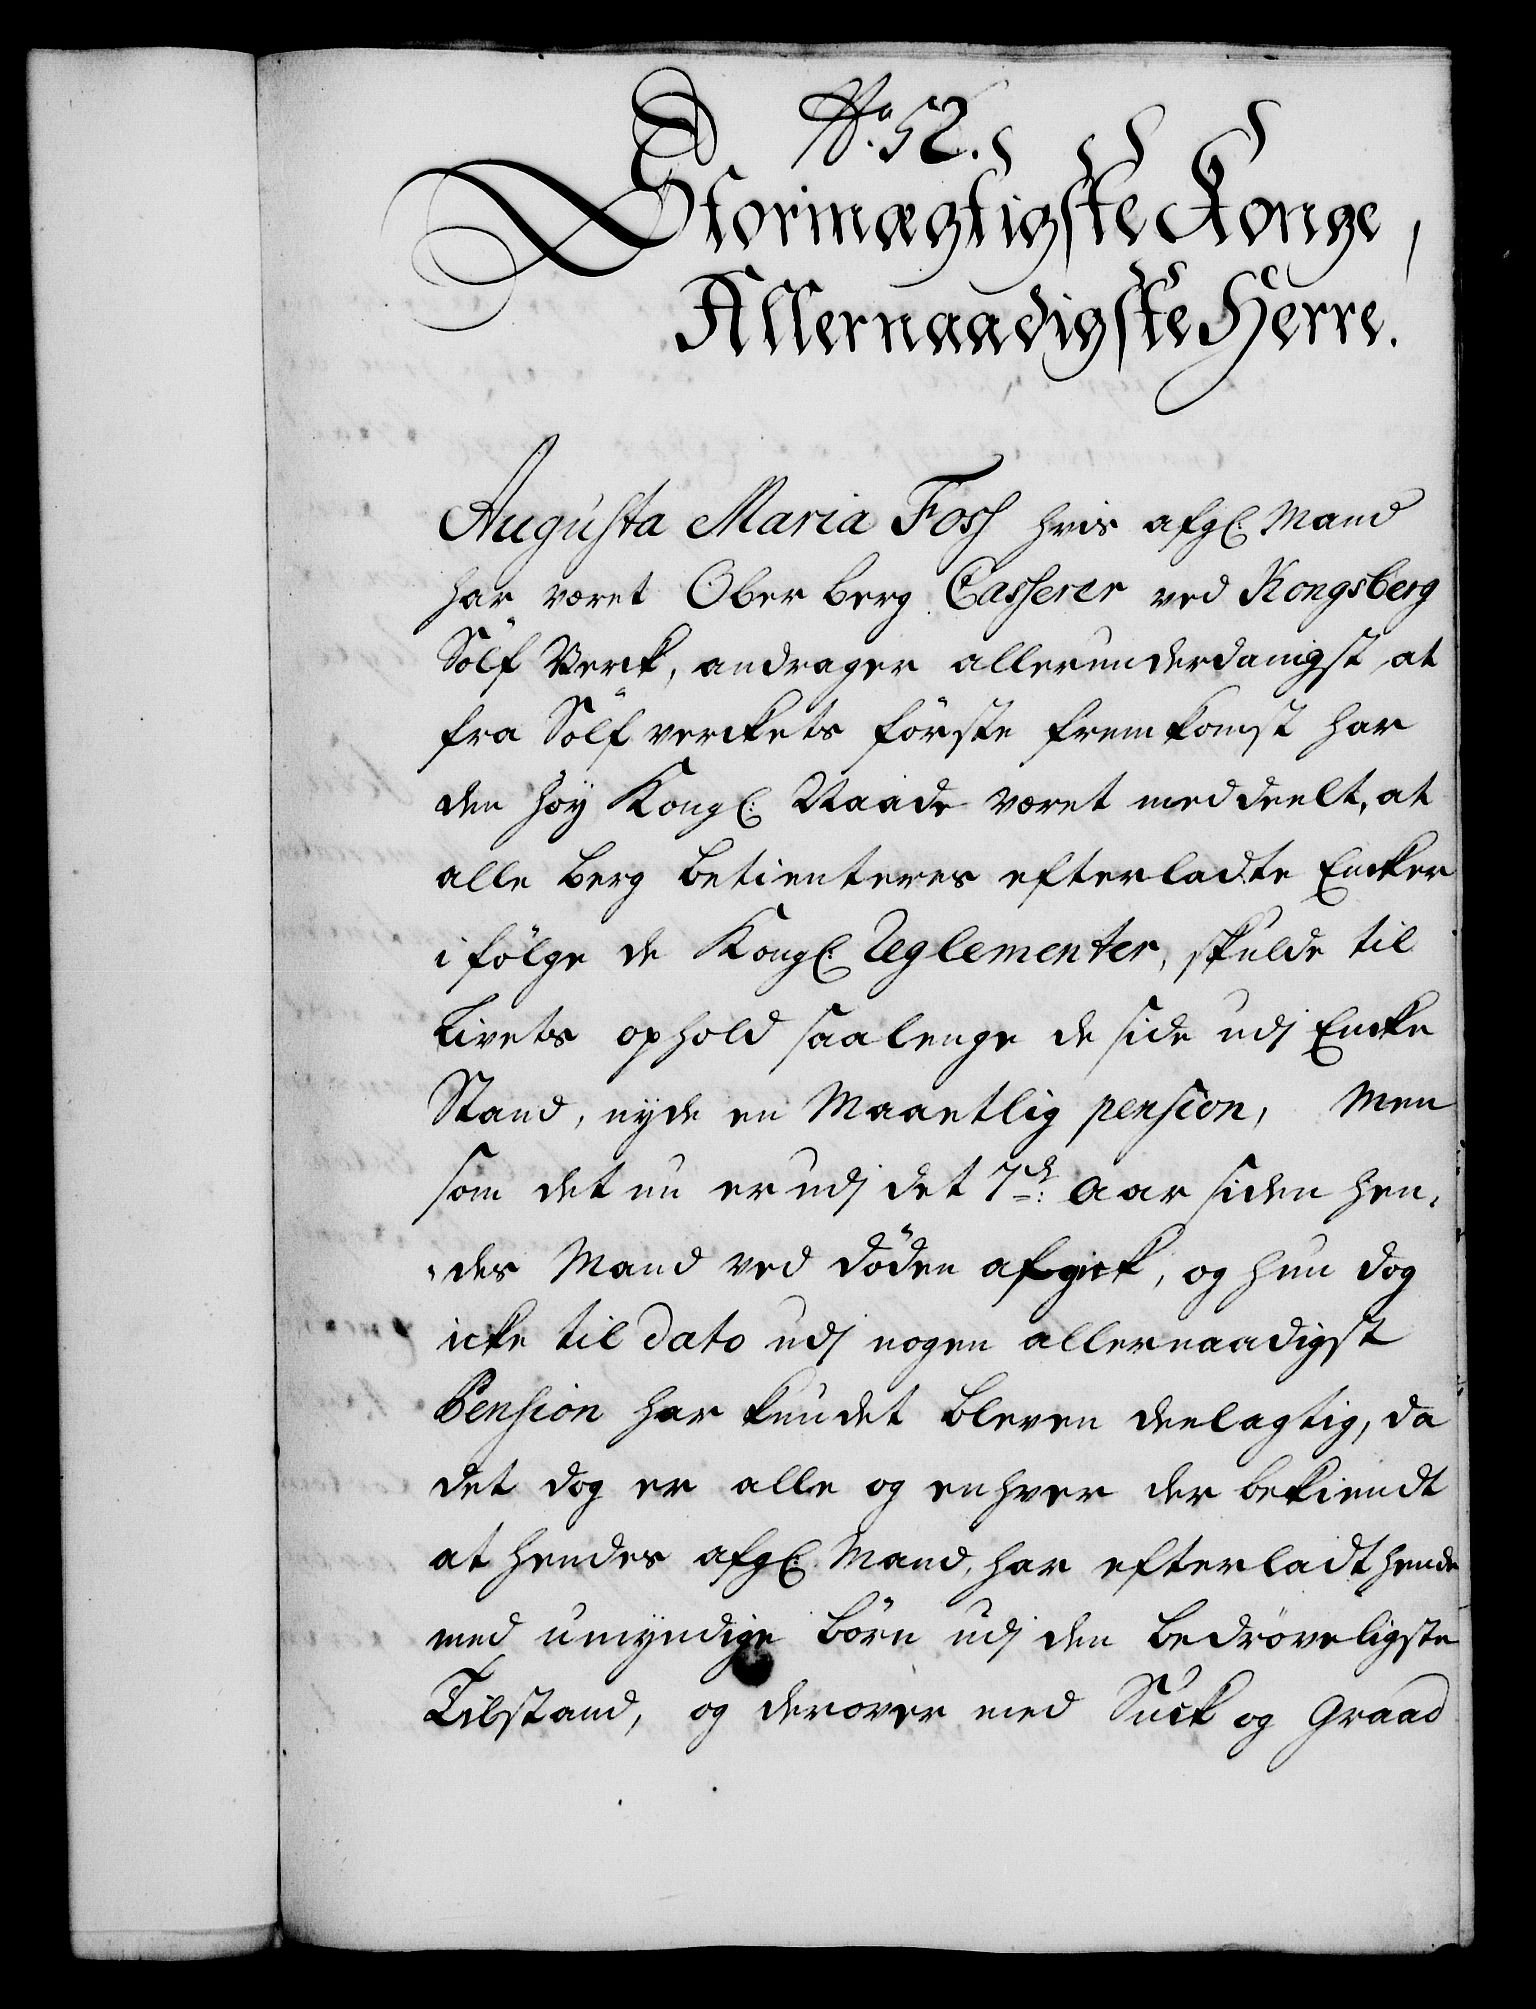 No. 52.
Stormægtigste Konge,
Allernaadigste Herre.
Augusta Maria Foss hvis afgl: Mand
har været Ober berg Casserer ved Kongsberg
Sölf Verck, andrager allerunderdanigst, at
fra Sölfverckets förste fremkomst har
den höy Kongl: Naade været meddeelt, at
alle berg betienteres efterladte Encker
i fölge de Kongl: Reglementer, skulde til
Livets ophold saalenge de side udj Encke
Stand, nyde en Maanetlig pension, Men
som det nu er udj det 7de: aar siden hen-
-des Mand ved döden afgick, og hun dog
icke til dato udj nogen allernaadigst
Pension har kundet bleven deelagtig, da
det dog er alle og enhver der bekiendt
at hendes afgl: Mand, har efterladt hende
med umyndige börn udj den bedröveligste
Tilstand, og derover med Suck og Graad